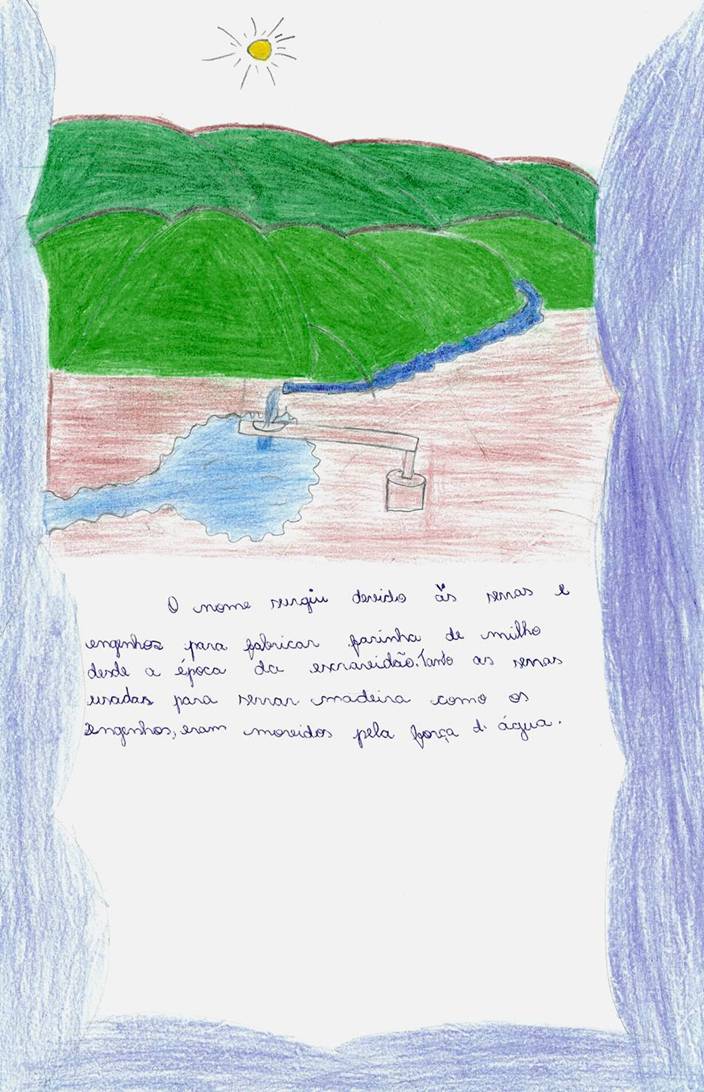 O nome surgiu devido às serras e
engenhos para fabricar farinha de milho
desde a época da escravidão. Tanto as serras
usadas para serrar madeira como os
engenhos, eram movidos pela força d' água.